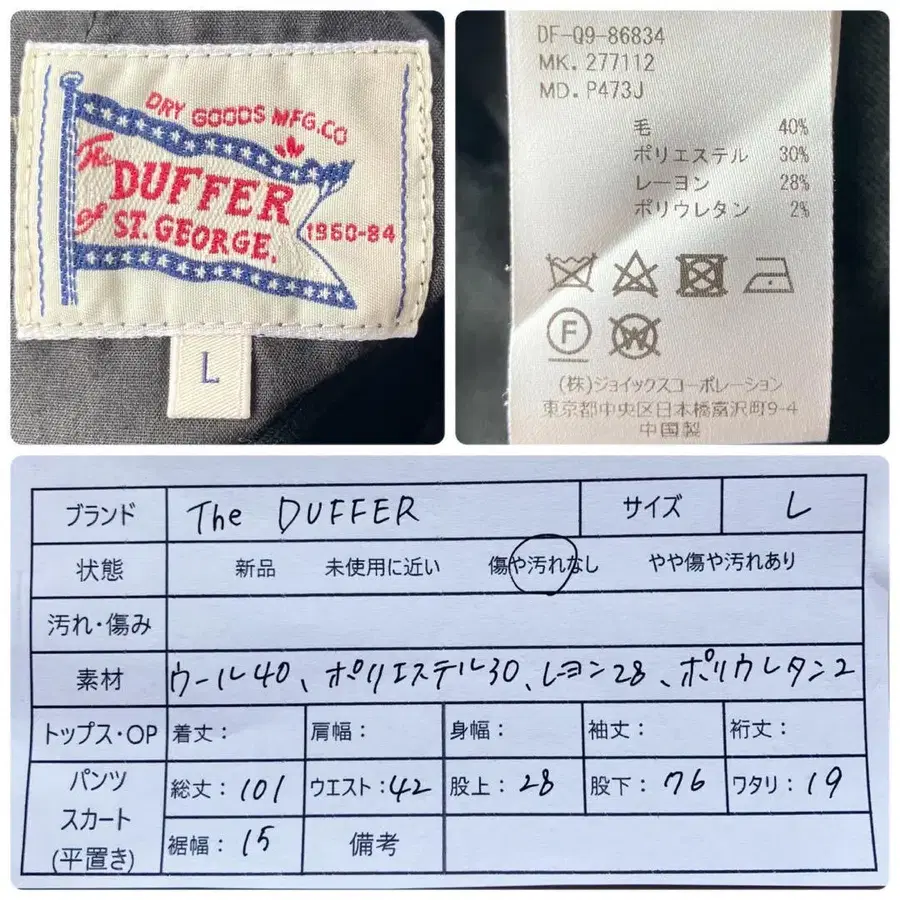 DRY GOODS MFG.CO
The
DUFFER
of ST. GEORGE.
1960-84
L
DF-Q9-86834
MK. 277112
MD. P473J
毛 40%
ポリエステル 30%
レーヨン 28%
ポリウレタン 2%
F
W
(株)ジョイックスコーポレーション
東京都中央区日本橋富沢町9-4
中国製
ブランド The DUFFER サイズ L
状態 新品 未使用に近い 傷や汚れなし やや傷や汚れあり
汚れ・傷み
素材 ウール40、ポリエステル30、レーヨン28、ポリウレタン2
トップス・OP 着丈: 肩幅: 身幅: 袖丈: 裄丈:
パンツ
スカート
(平置き)
総丈:101 ウエスト:42 股上:28 股下:76 ワタリ:19
裾幅:15 備考